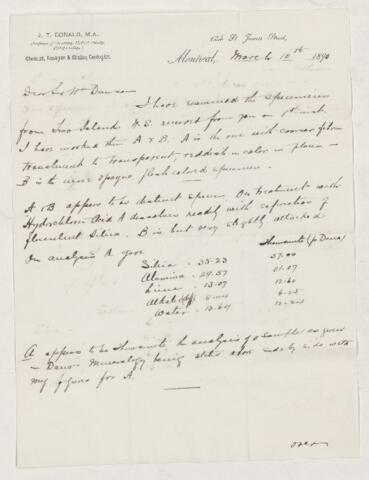 J. T. DONALD, M.A.
Chemist, Assayer & Mining Geologist.
St. James Street,
Montreal, March 10th 1890
Dear Sir Wm Dawson
I have examined the specimens
from Two Islands N.S. received from you on 1st inst
I have marked them A & B. A is the one with
translucent to transparent, reddish in color in places —
B is the more opaque flesh colored specimen.
A & B appear to be distinct species. On treatment with
Hydrochloric Acid A dissolves readily with separation of
flocculent Silica. B is but very slightly attacked
On analysis A gave
Thomsonite (p Dana)
Silica - 38.23 37.00
Alumina - 29.57 31.07
Lime - 13.07 13.60
Alkalis 6.25
Water - 13.64
A appears to be Thomsonite the analysis of a sample as given
in Dana's Mineralogy being stated above side by side with
my figures for A.
over